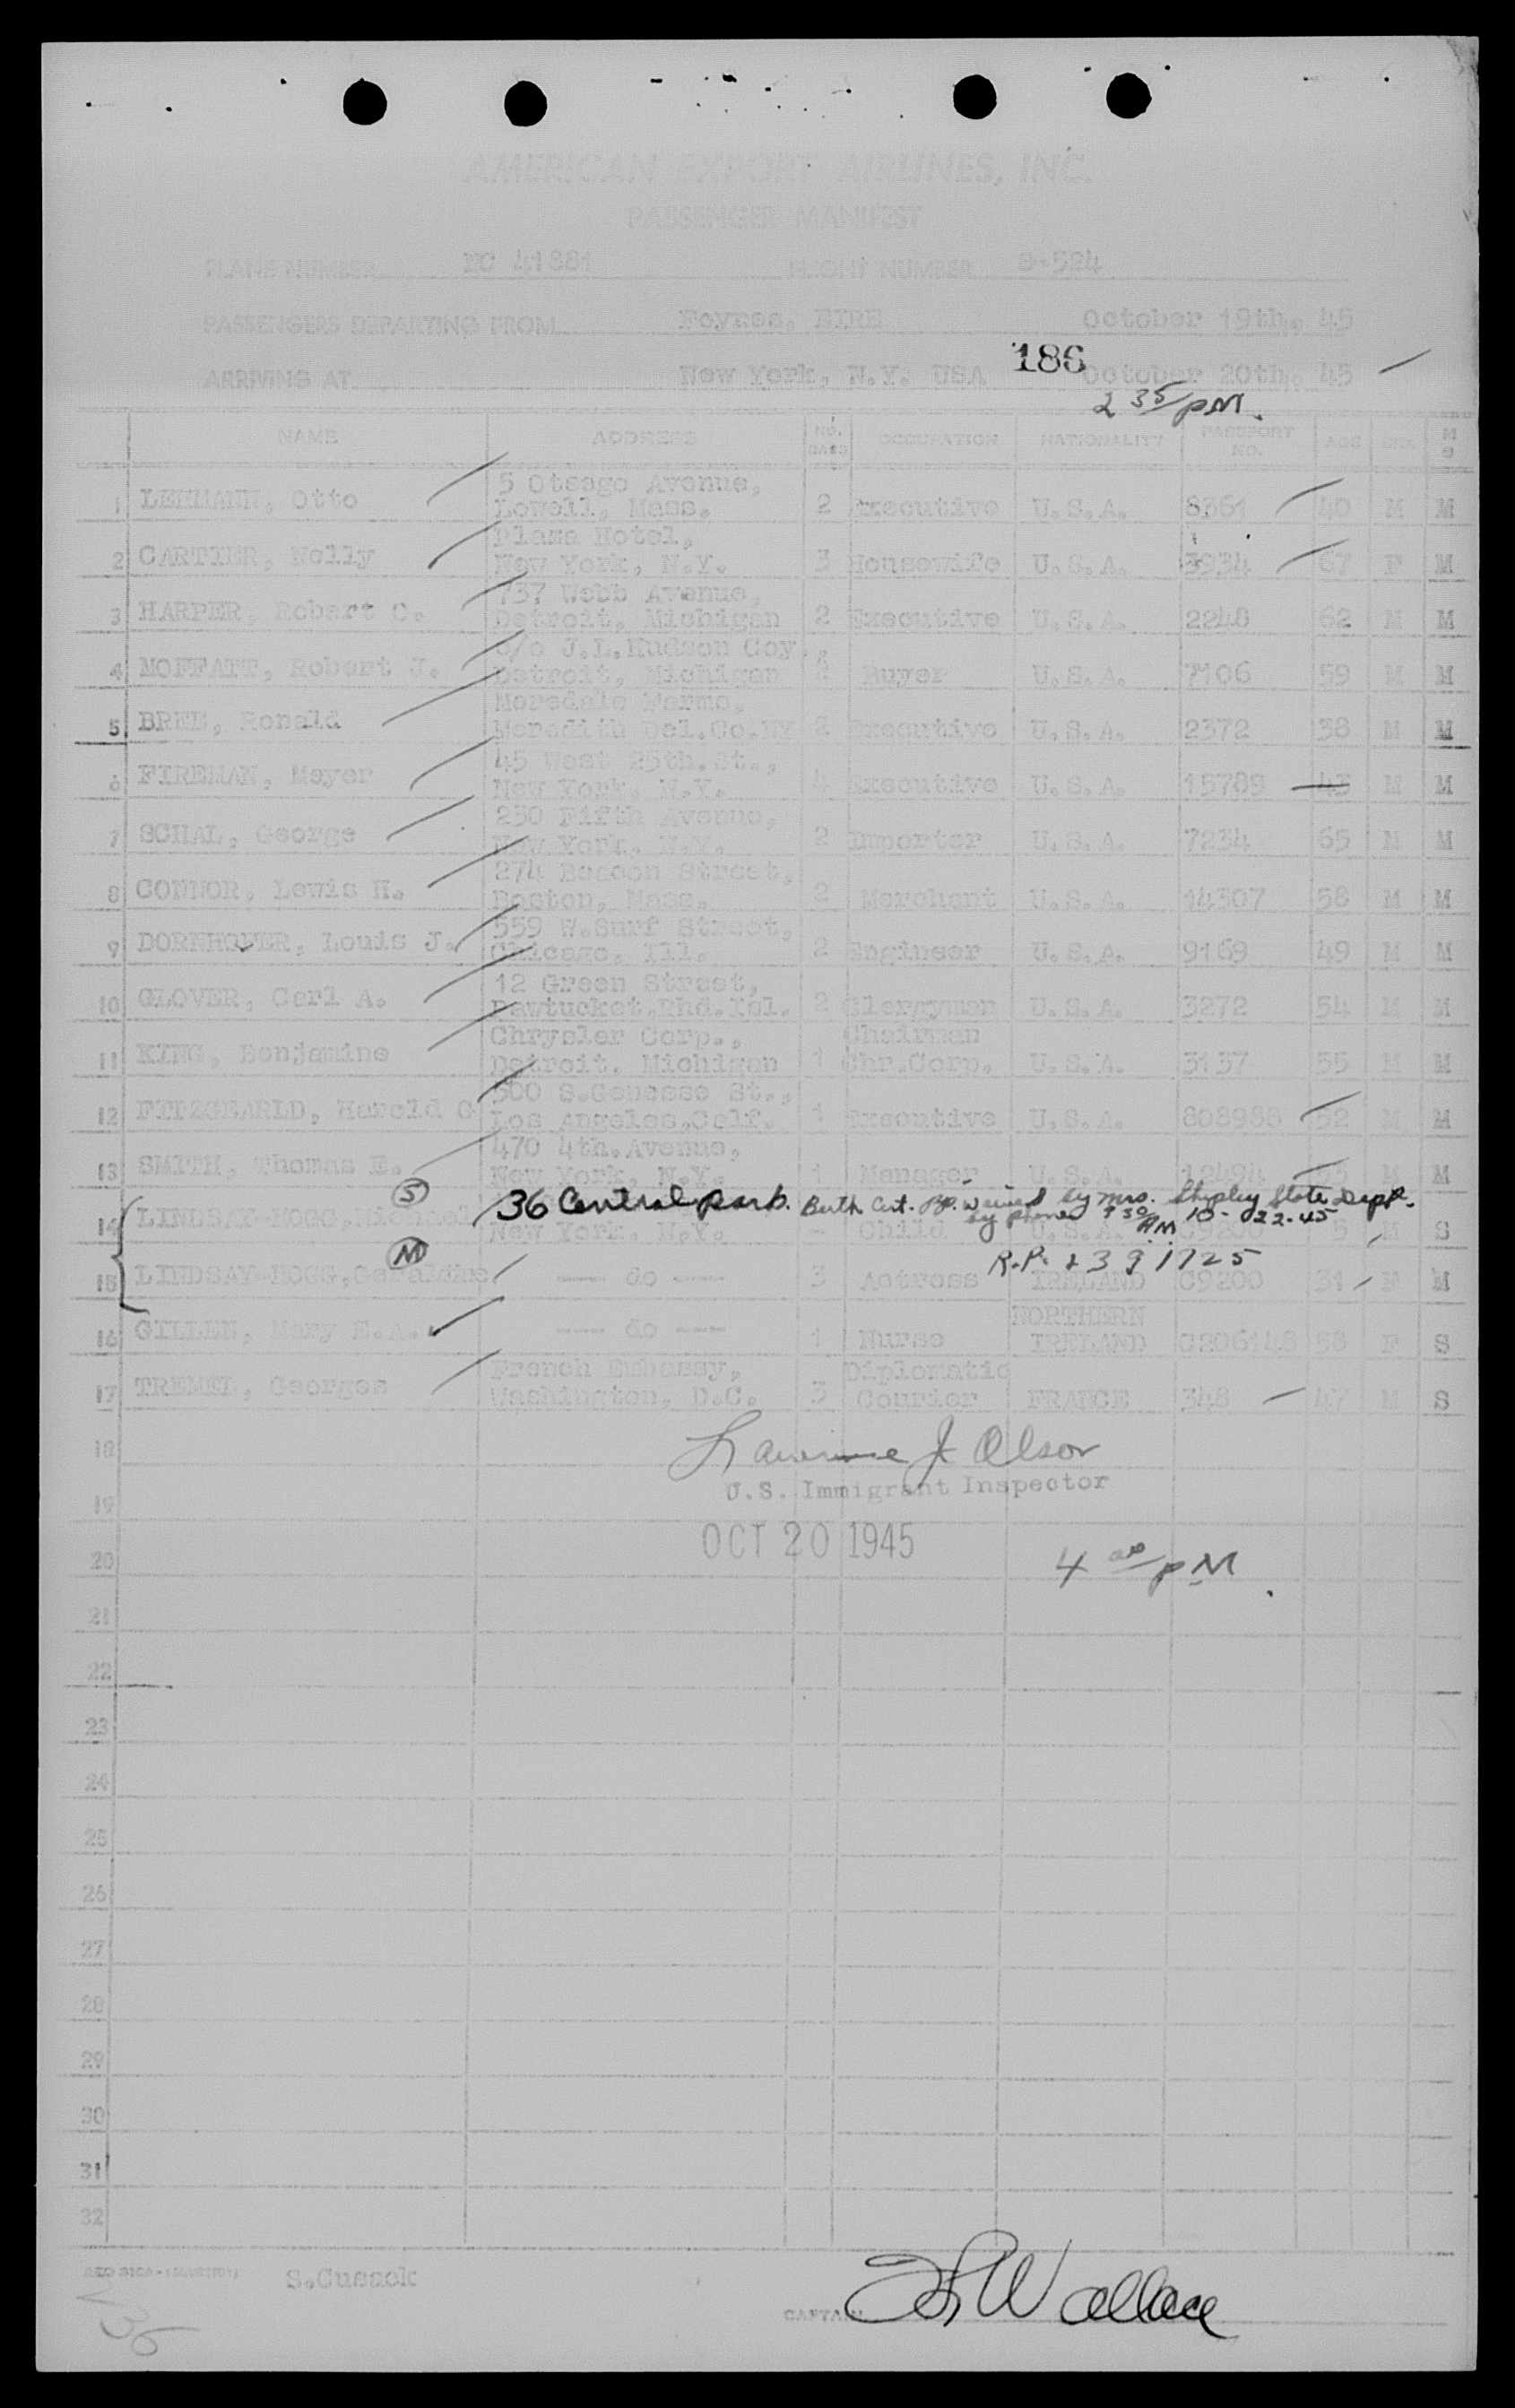 186
AMERICAN EXPORT AIRLINES, INC.
PASSENGER MANIFEST
PLANE NUMBER NC 41881 FLIGHT NUMBER 3-524
PASSENGERS DEPARTING FROM Foynes, EIRE October 19th, 45
ARRIVING AT New York, N.Y. USA October 20th, 45
2 35/PM.
NAME ADDRESS NO. BAGS OCCUPATION NATIONALITY PASSPORT NO. AGE SEX M S
5 Otsego Avenue,
1 LEHMANN, Otto Lowell, Mass. 2 Executive U.S.A. 8361 40 M M
Plaza Hotel,
2 CARTIER, Nelly New York, N.Y. 3 Housewife U.S.A. 3934 67 F M
737 Webb Avenue,
3 HARPER, Robert C. Detroit, Michigan 2 Executive U.S.A. 2248 62 M M
c/o J.L.Hudson Coy.,
4 MOFFATT, Robert J. Detroit, Michigan Buyer U.S.A. 7106 59 M M
Meredale Farms,
5 BREE, Ronald Meredith Del.Co.NY 2 Executive U.S.A. 2372 38 M M
45 West 25th.St.,
6 FIREMAN, Meyer New York, N.Y. 4 Executive U.S.A. 15789 43 M M
230 Fifth Avenue,
7 SCHAL, George New York, N.Y. 2 Importer U.S.A. 7234 65 M M
274 Beacon Street,
8 CONNOR, Lewis H. Boston, Mass. 2 Merchant U.S.A. 14307 58 M M
559 W.Surf Street,
9 DORNHOFER, Louis J. Chicago, Ill. 2 Engineer U.S.A. 9169 49 M M
12 Green Street,
10 GLOVER, Carl A. Pawtucket,Rhd.Isl. 2 Clergyman U.S.A. 3272 54 M M
Chrysler Corp., Chairman
11 KING, Benjamine Detroit, Michigan 1 Chr.Corp. U.S.A. 3137 55 M M
500 S.Genesee St.,
12 FITZGEARLD, Harold G Los Angeles,Calf. 1 Executive U.S.A. 808988 52 M M
470 4th.Avenue,
13 SMITH, Thomas E. New York, N.Y. 1 Manager U.S.A. 12494 M M
S 36 Central Park. Birth Cert. PP. Waived by Mrs. Shipley State Dept.
by phone 9 30/AM 10-22-45
14 LINDSAY-HOGG, Michael New York, N.Y. - Child U.S.A. C9200 5 M S
M R.P. 2391725
15 LINDSAY-HOGG, Geraldine --- do --- 3 Actress IRELAND C9200 31 F M
NORTHERN
16 GILLEN, Mary E.A. --- do --- 1 Nurse IRELAND C206148 58 F S
French Embassy, Diplomatic
17 TREMEL, Georges Washington, D.C. 3 Courier FRANCE 348 47 M S
18
Lawrence J Olson
U.S. Immigrant Inspector
19
OCT 20 1945
20
4 00/PM.
21
22
23
24
25
26
27
28
29
30
31
32
S.Cussok
CAPTAIN Wallace